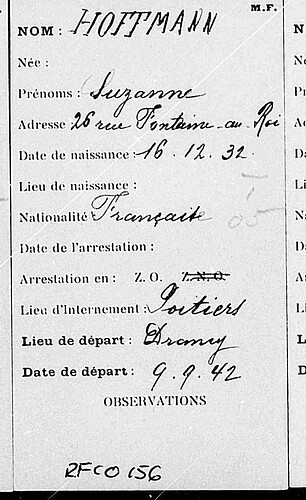 M.F.
NOM : HOFFMANN
Née :
Prénoms : Suzanne
Adresse 26 rue Fontaine-au-Roi
Date de naissance : 16.12.32
Lieu de naissance :
Nationalité Française
Date de l'arrestation :
Arrestation en : Z. O. Z.N.O.
Lieu d'Internement : Poitiers
Lieu de départ : Drancy
Date de départ : 9.9.42
OBSERVATIONS
RFCO 156